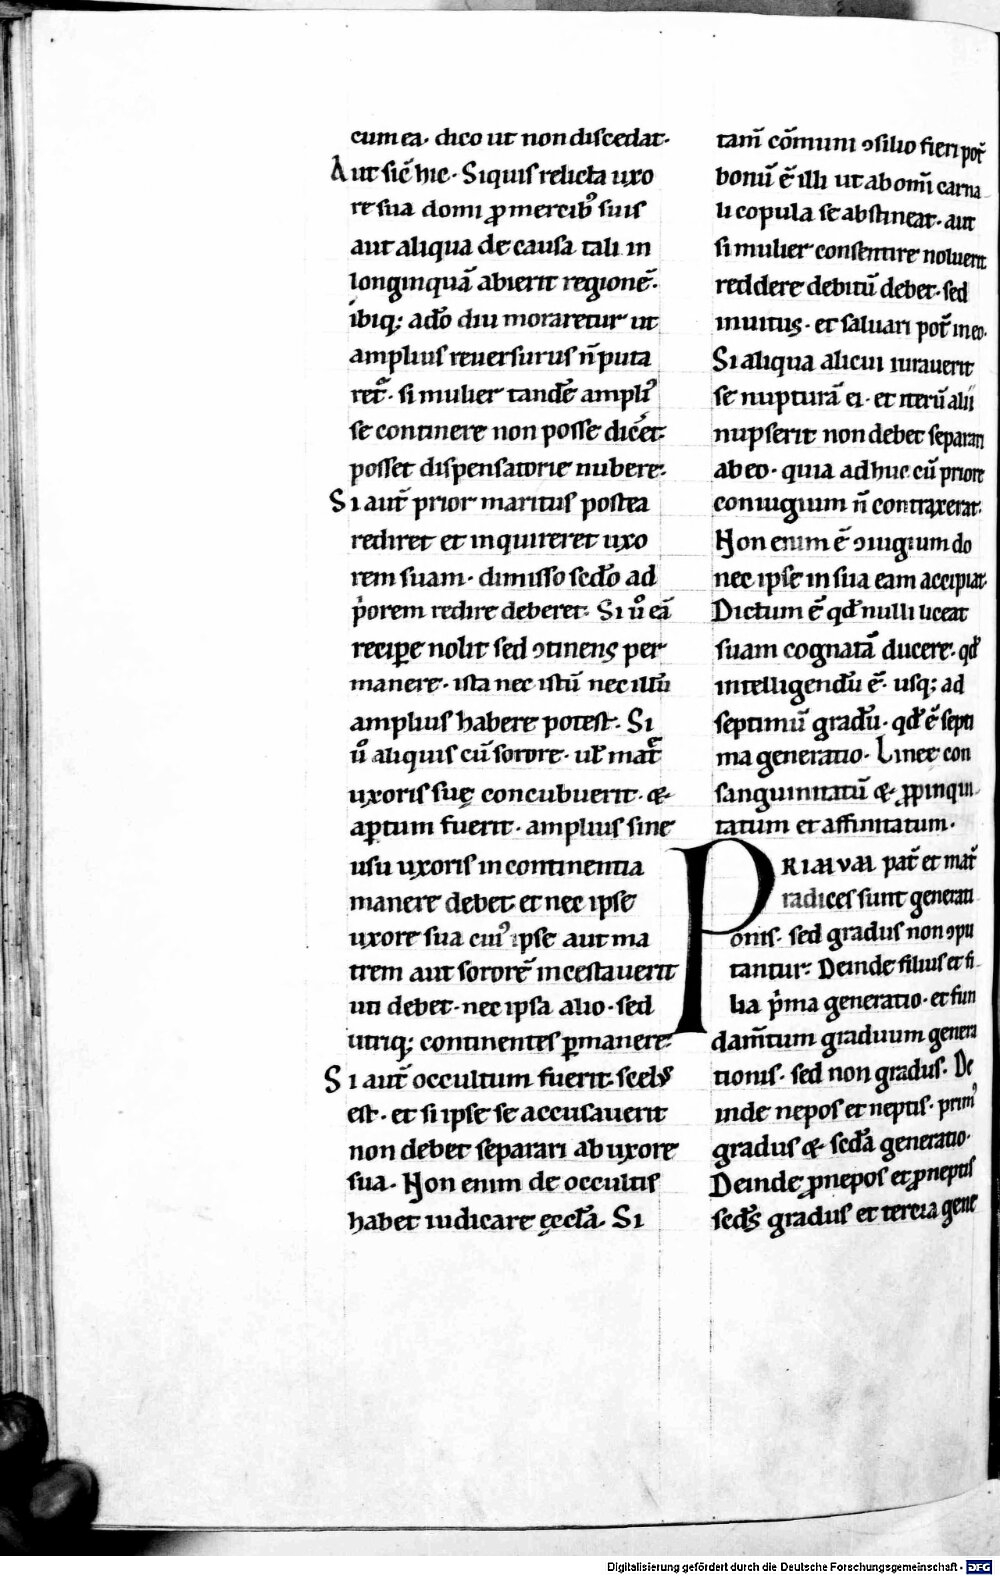 cum ea· dico ut non discedat·
Aut sic̄ hic· Siquis relicta uxo
re sua domi ꝓ mercibꝰ suis
aut aliqua de causa tali in
longinquā abierit regionē·
ibiq; adō diu moraretur ut
amplius reuersurus n̄ puta
ret̄· si mulier tandē ampliꝰ
se continere non posse dic̄et·
posset dispensatorie nubere·
Si aut̄ prior maritus postea
rediret et inquireret uxo
rem suam· dimisso sed̄o ad
p̄orem redire deberet· Si u̇̄ eā
recipe nolit sed ↄtinens per
manere· ista nec istū nec illū
amplius habere potest· Si
u̇̄ aliquis cū sorore· uł mat̄
uxoris suę concubuerit· &
aptum fuerit· amplius sine
usu uxoris in continentia
manere debet et nec ipse
uxore sua cuiꝰ ipse aut ma
trem aut sororē incestauerit
uti debet· nec ipsa alio· sed
utriq; continentes ꝑmanere·
Si aut̄ occultum fuerit scelꝰ
est· et si ipse se accusauerit
non debet separari ab uxore
sua· Non enim de occultis
habet iudicare ęccła· Si
tam̄ cōmuni ↄsilio fieri pot̄
bonū ē illi ut ab om̄i carna
li copula se abstineat· aut
si mulier consentire noluerit
reddere debitū debet· sed
inuitus· et saluari pot̄ in eo·
Si aliqua alicui iurauerit
se nupturā ei· et iterū alii
nupserit non debet separari
ab eo· quia adhuc cū priore
coniugium n̄ contraxerat·
Non enim ē ↄiugium do
nec ipse in sua eam accipiat·
Dictum ē qđ nulli liceat
suam cognatā ducere· qđ
intelligendū ē· usq; ad
septimū gradū· qđ ē septi
ma generatio· Lineę con
sanguinitatū & ꝓpinqui
tatum et affinitatum·
PRIMUM pat̄ et mat̄
radices sunt generati
onis· sed gradus non ↄpu
tantur· Deinde filius et fi
lia p̄ma generatio· et fun
dam̄tum graduum genera
tionis· sed non gradus· De
inde nepos et neptis· primꝰ
gradus & sed̄a generatio·
Deinde ꝓnepos et ꝓneptis
sed̄s gradus et tercia gene
Digitalisierung gefördert durch die Deutsche Forschungsgemeinschaft - DFG